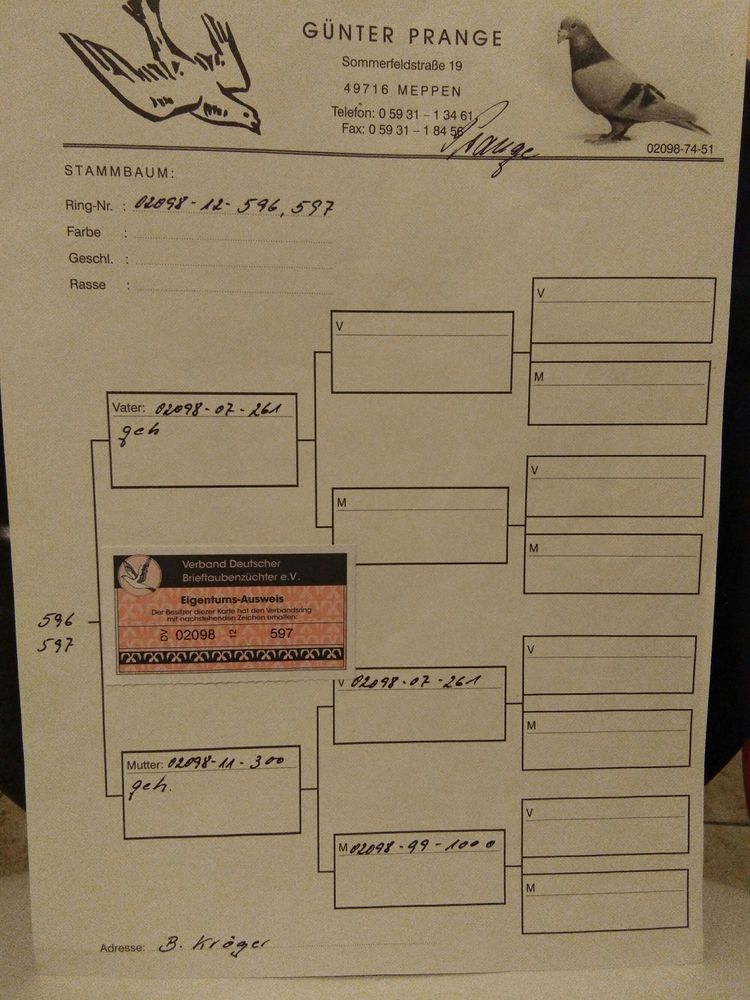 GÜNTER PRANGE
Sommerfeldstraße 19
49716 MEPPEN
Telefon: 0 59 31 – 1 34 61
Fax: 0 59 31 – 1 84 56
Prange
02098-74-51
STAMMBAUM:
Ring-Nr. : 02098-12-596, 597
Farbe :
Geschl. :
Rasse :
V
V
M
Vater: 02098-07-261
geh
M
V
M
Verband Deutscher
Brieftaubenzüchter e.V.
Eigentums-Ausweis
Der Besitzer dieser Karte hat den Verbandsring
mit nachstehenden Zeichen erhalten:
DV 02098 12 597
596
597
V 02098-07-261
V
M
Mutter: 02098-11-300
geh.
M 02098-99-1000
V
M
Adresse: B. Kröger